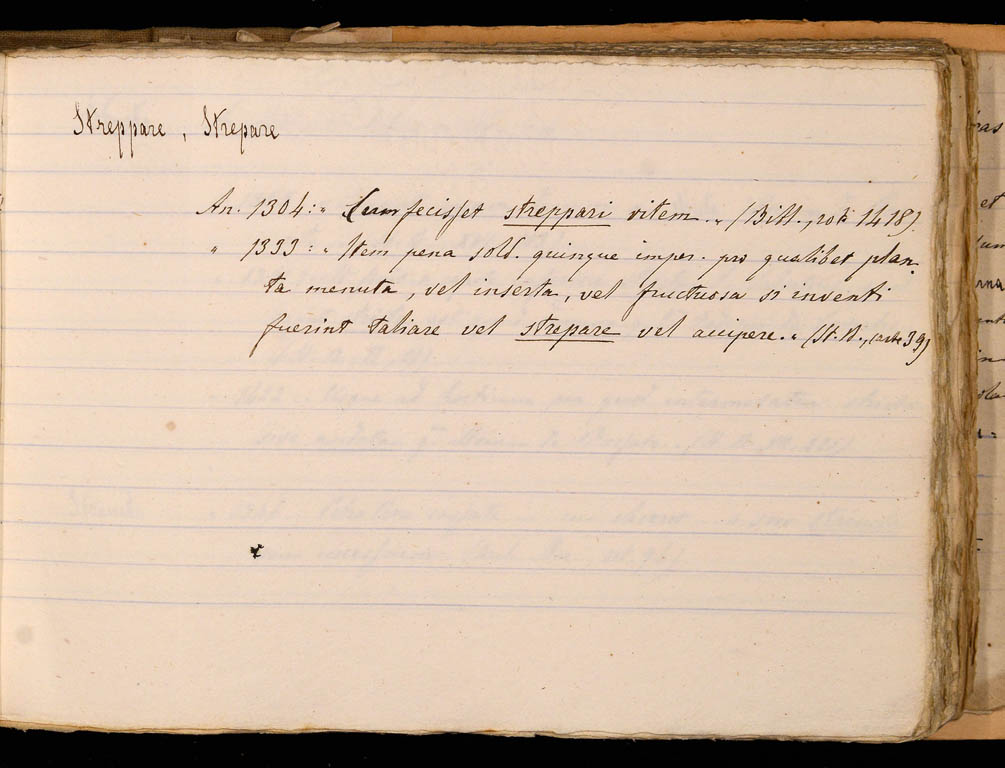 Streppare, Strepare
An. 1304: " Cum fecisset streppari vitem. " (Bill., rot. 1418).
" 1333: " Item pena sold. quinque imper. pro qualibet plan-
ta menuta, vel inserta, vel fructuosa si inventi
fuerint taliare vel strepare vel accipere. " (St. V., carte 39)